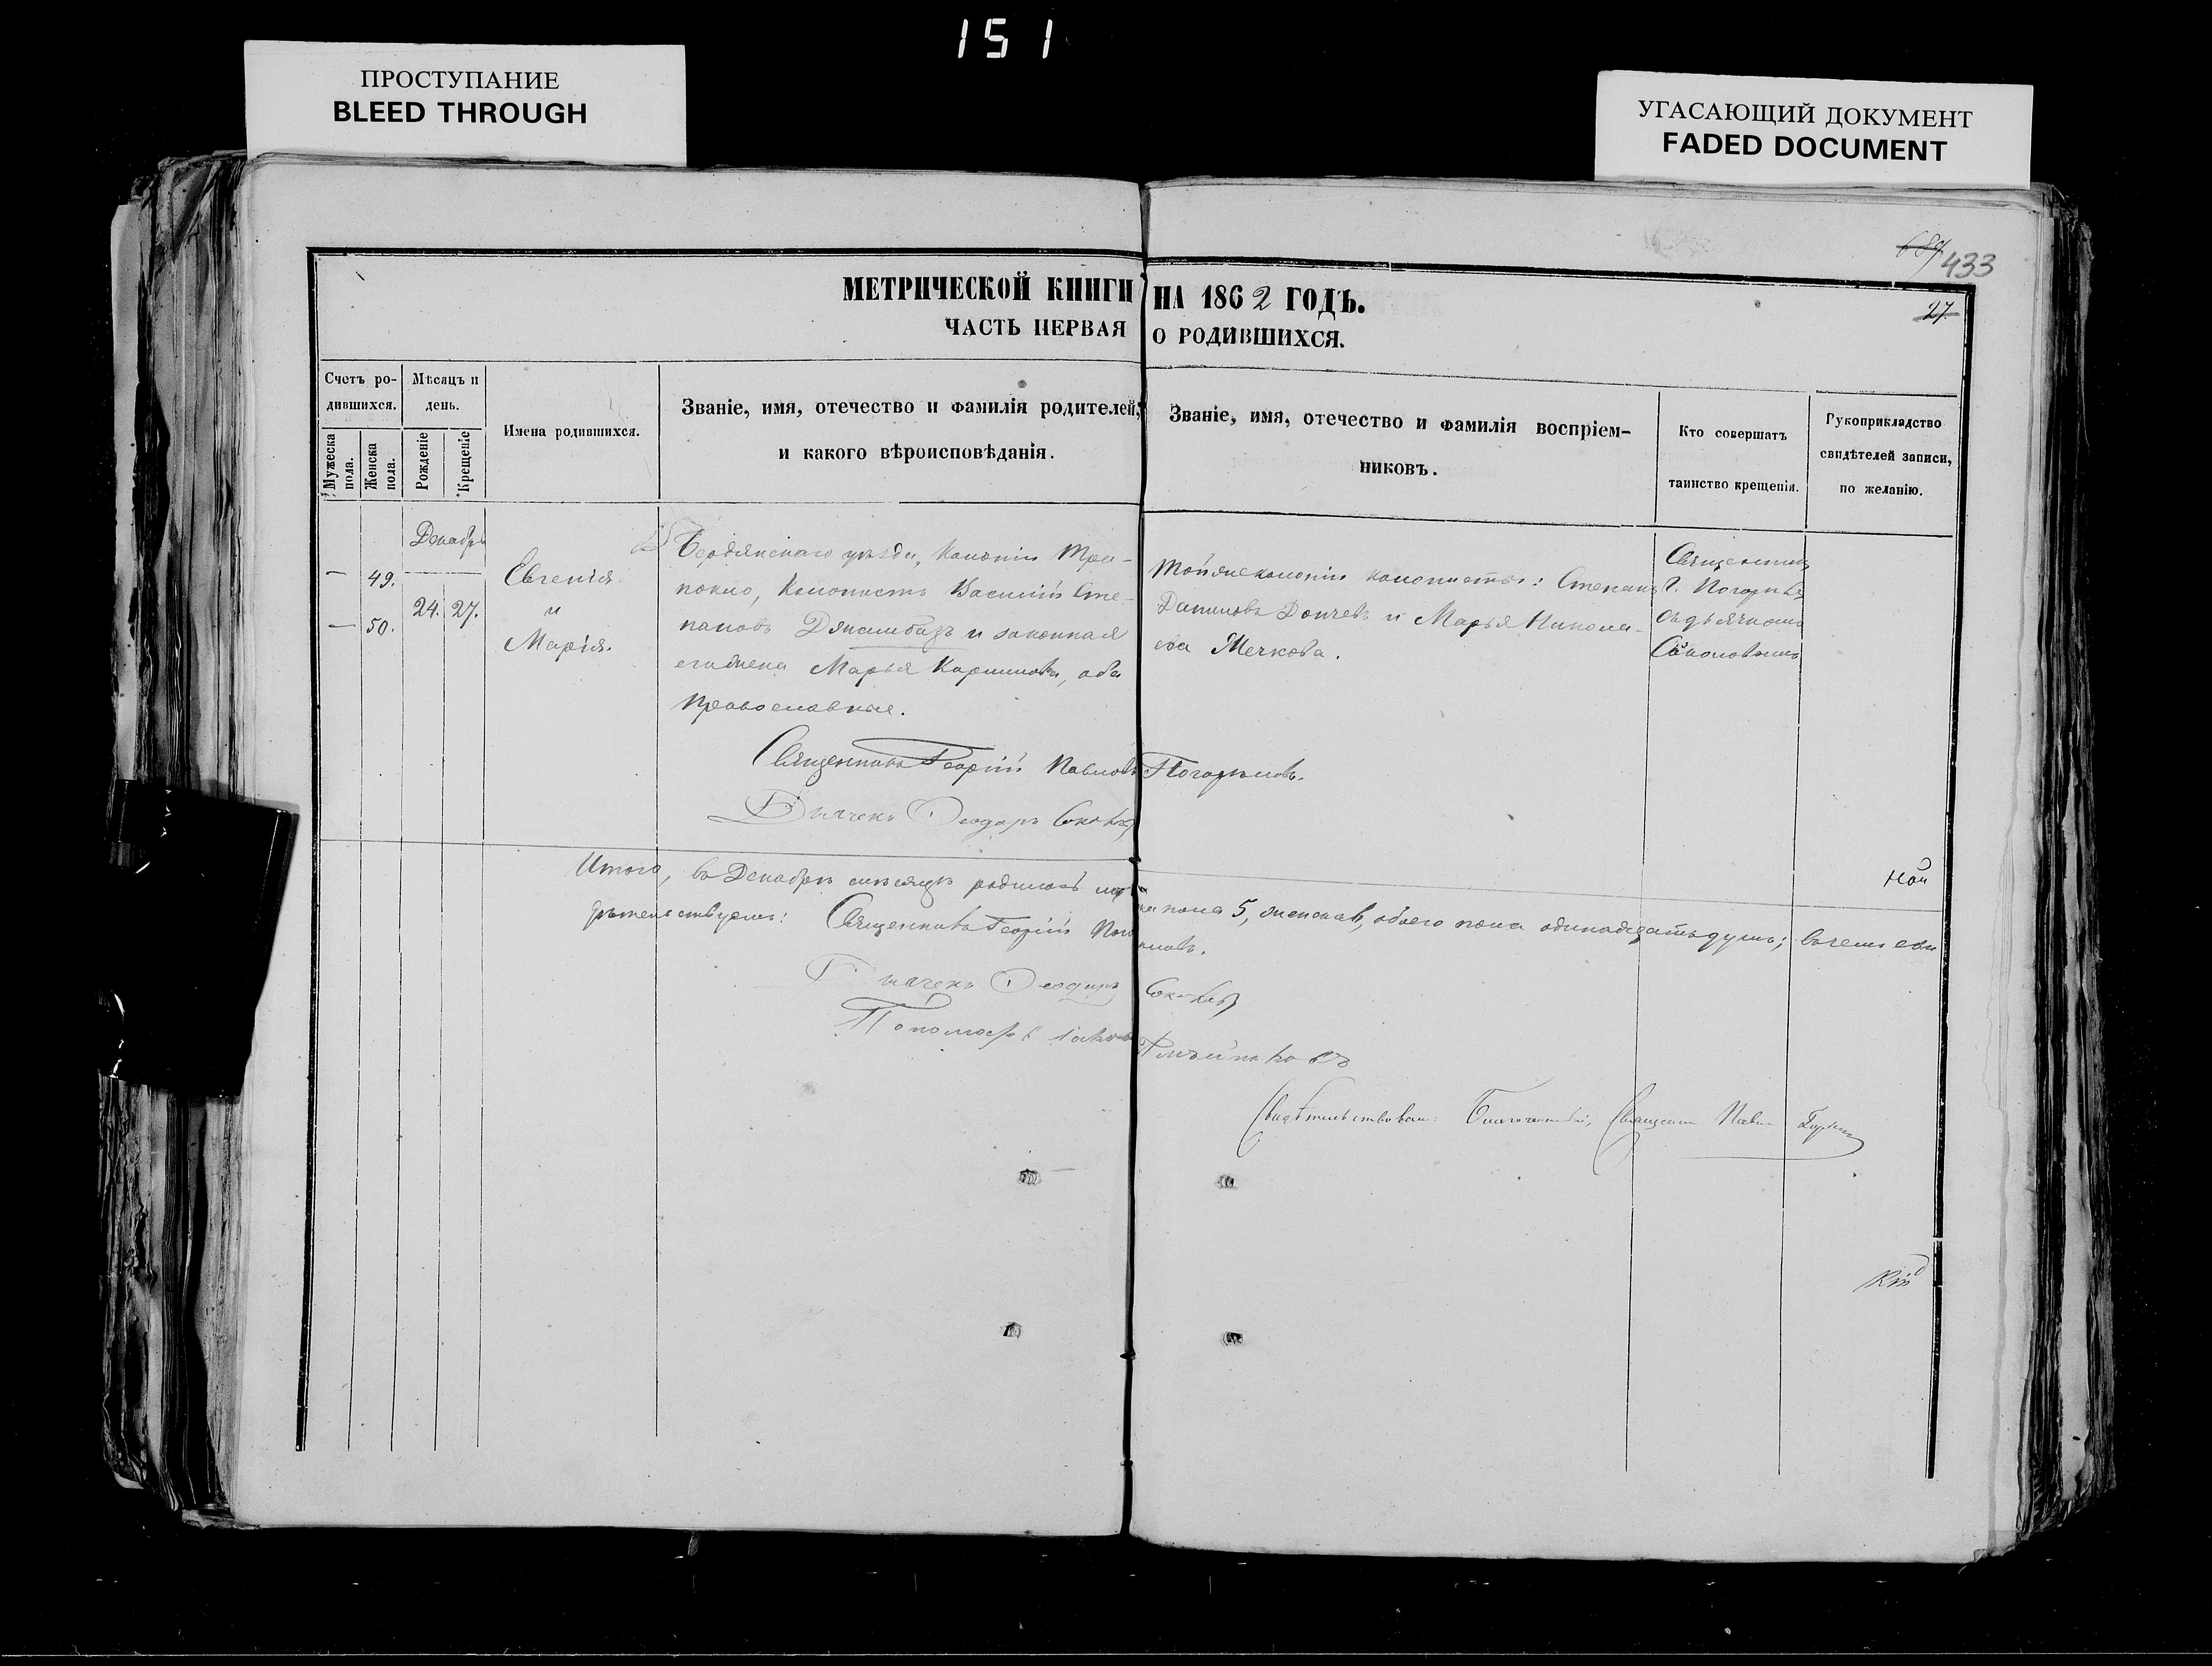 151
ПРОСТУПАНИЕ
BLEED THROUGH
УГАСАЮЩИЙ ДОКУМЕНТ
FADED DOCUMENT
689
433
27.
МЕТРИЧЕСКОЙ КНИГИ НА 1862 ГОДЪ.
ЧАСТЬ ПЕРВАЯ О РОДИВШИХСЯ.
Счетъ ро-
дившихся.
Мужеска пола.
Женска пола.
Мѣсяцъ и
день.
Рожденіе
Крещеніе
Имена родившихся.
Званіе, имя, отечество и фамилія родителей,
и какого вѣроисповѣданія.
Званіе, имя, отечество и фамилія воспріем-
никовъ.
Кто совершатъ
таинство крещенія.
Рукоприкладство
свидѣтелей записи,
по желанію.
Декабрь
— 49.
— 50.
24. 27.
Евгенія
и
Марія.
Бердянскаго уѣзда, Колоніи Тро-
яновъ, Колонистъ Василій Сте-
пановъ Джамбазъ и законная
его жена Марья Каримова, оба
православные.
Тойже колоніи колонисты: Степанъ
Даниловъ Дончевъ и Марья Никола-
ева Мечкова.
Священникъ
Г. Погорѣловъ
съ дьячкомъ
Соколовымъ
Священникъ Георгій Павловъ Погорѣловъ.
Дьячекъ Ѳеодоръ Соколовъ
Итого, въ Декабрѣ мѣсяцѣ родилось мужеска пола 5, женска 6, обоего пола одинадцать душъ; въ чемъ сви
дѣтельствуемъ: Священникъ Георгій Погорѣловъ.
Дьячекъ Ѳеодоръ Соколовъ
Пономарь Іаковъ
Свидѣтельствовалъ: Благочинный, Священникъ Павелъ